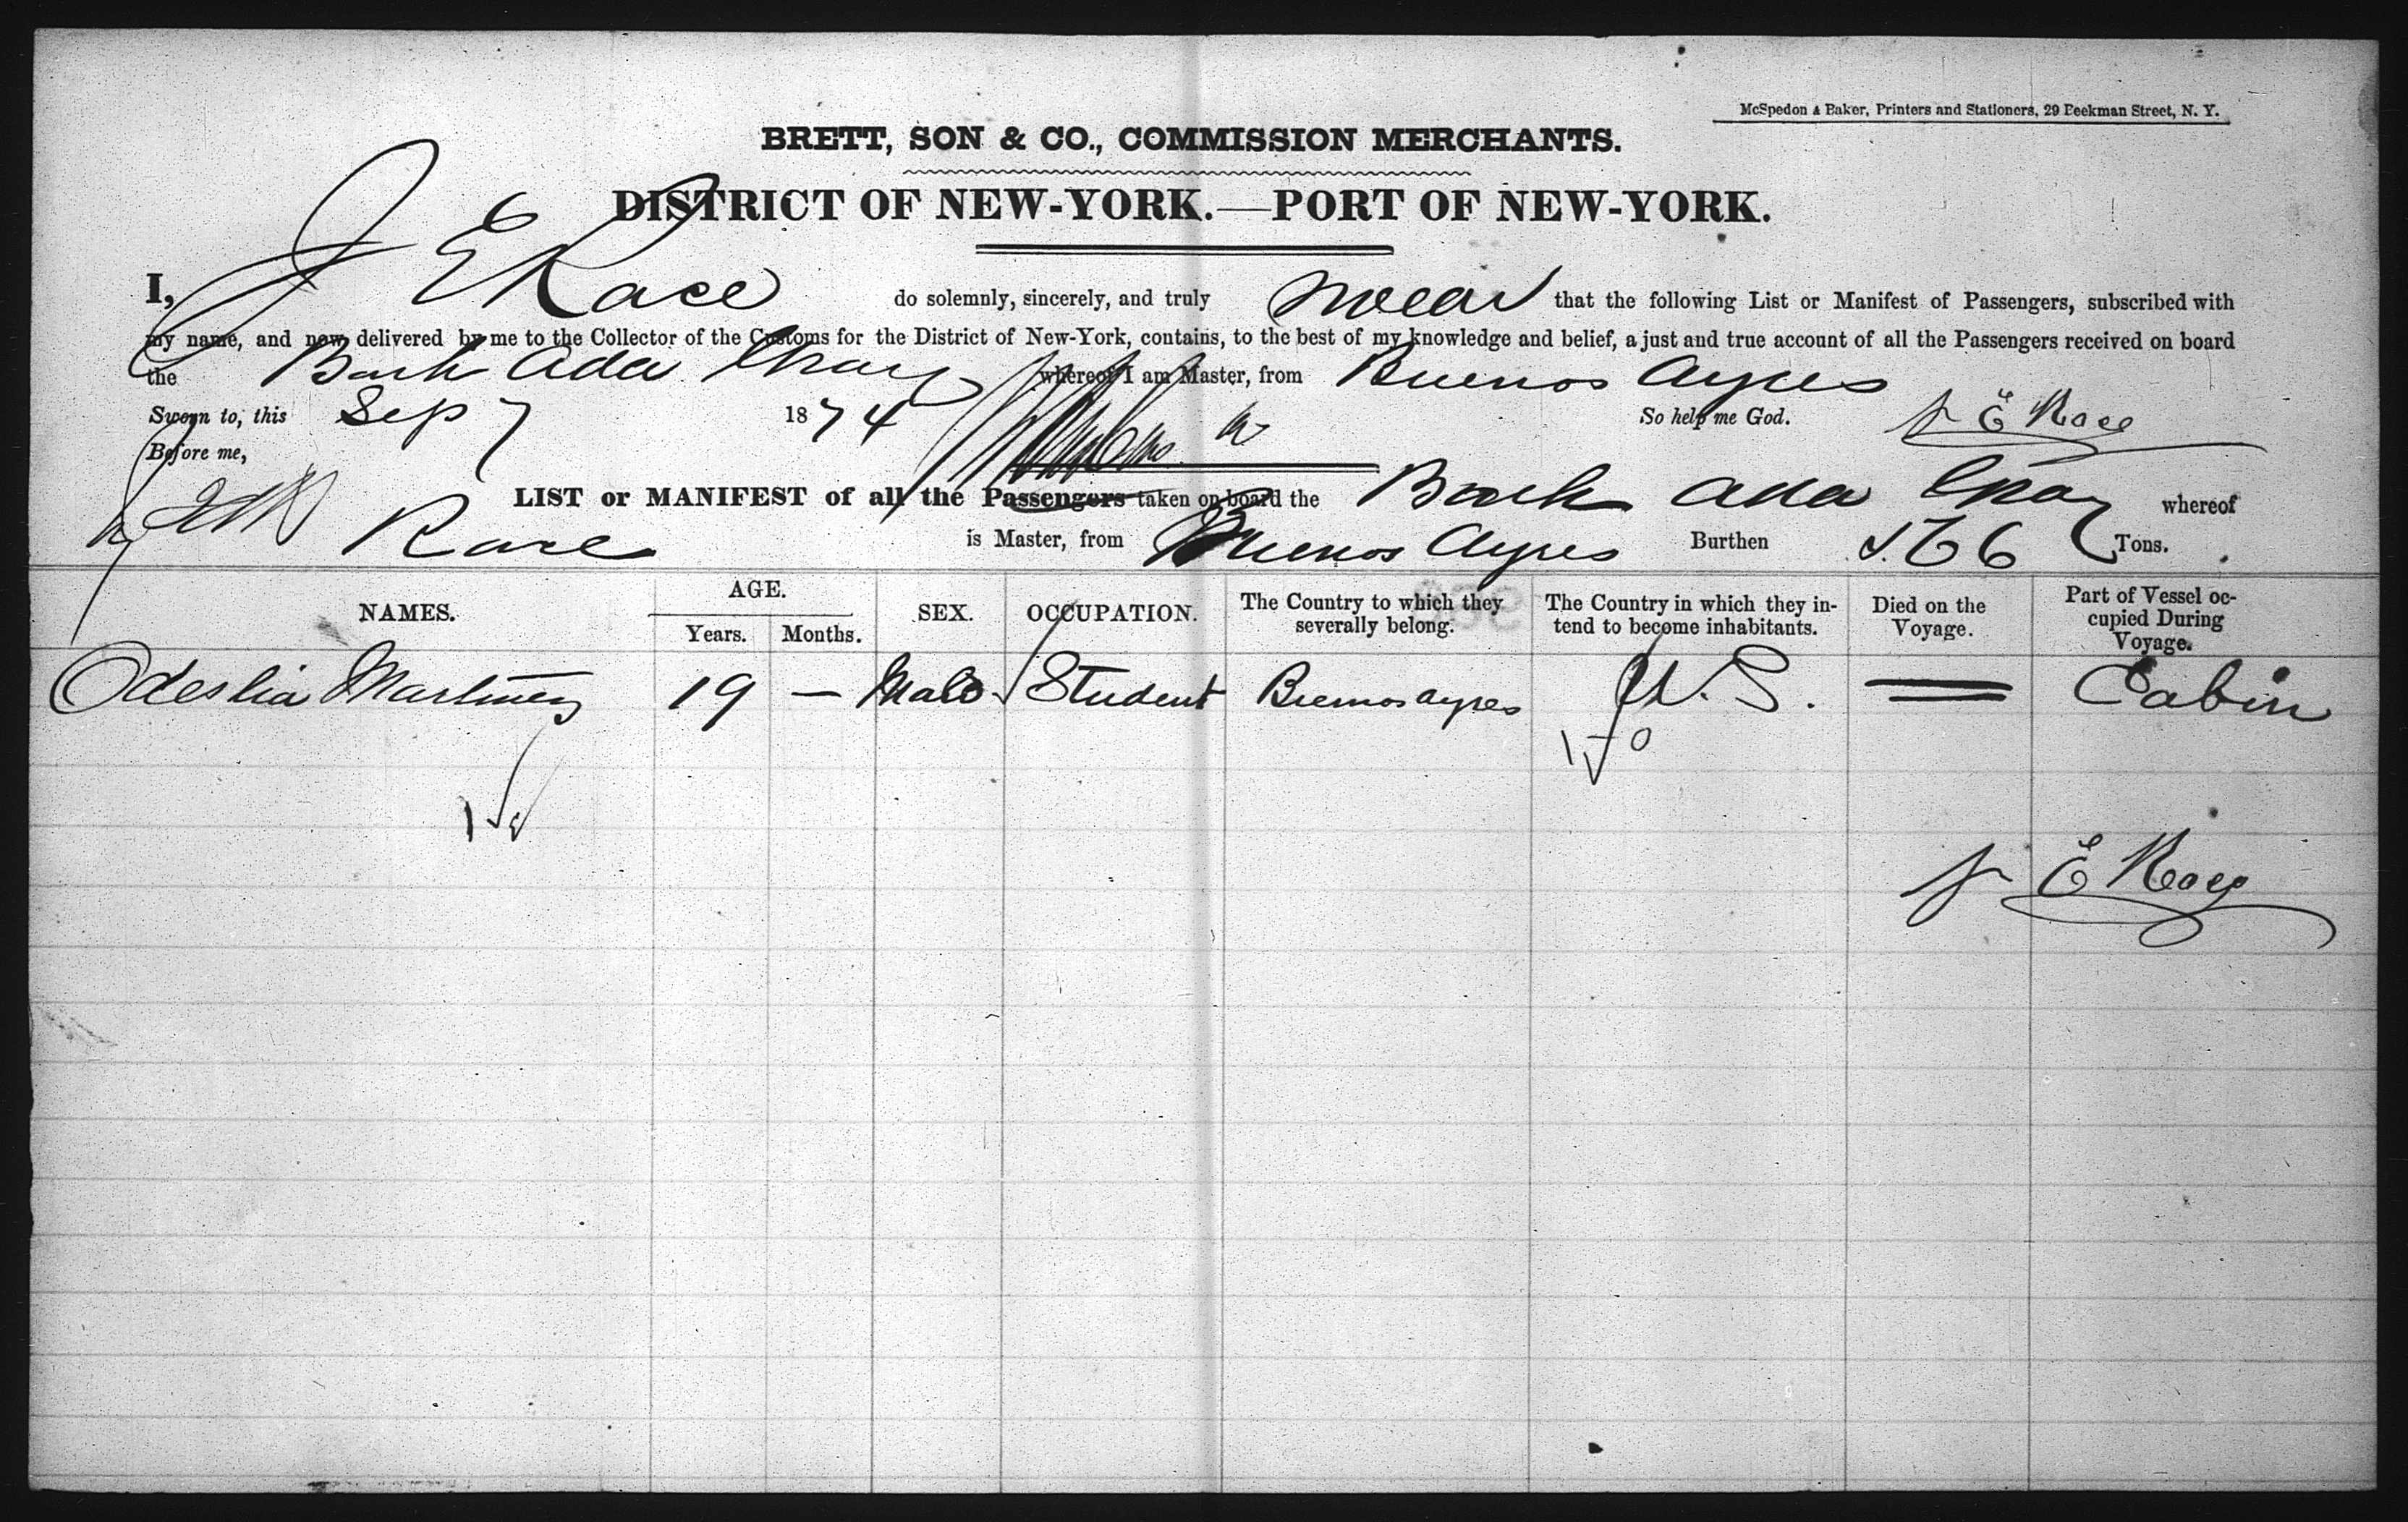 McSpedon & Baker, Printers and Stationers, 29 Beekman Street, N. Y.
BRETT, SON & CO., COMMISSION MERCHANTS.
DISTRICT OF NEW-YORK.—PORT OF NEW-YORK.
I, J E Race do solemnly, sincerely, and truly swear that the following List or Manifest of Passengers, subscribed with
my name, and now delivered by me to the Collector of the Customs for the District of New-York, contains, to the best of my knowledge and belief, a just and true account of all the Passengers received on board
the Bark Ada Gray whereof I am Master, from Buenos Ayres
Sworn to, this Sep 7 1874 So help me God. J E Race
Before me,
LIST or MANIFEST of all the Passengers taken on board the Bark Ada Gray whereof
Race is Master, from Buenos Ayres Burthen 566 Tons.
NAMES. AGE. Years. Months. SEX. OCCUPATION. The Country to which they severally belong. The Country in which they intend to become inhabitants. Died on the Voyage. Part of Vessel occupied During Voyage.
Odeslia Martinez 19 — Male Student Buenos Ayres U. S. Cabin
J E Race